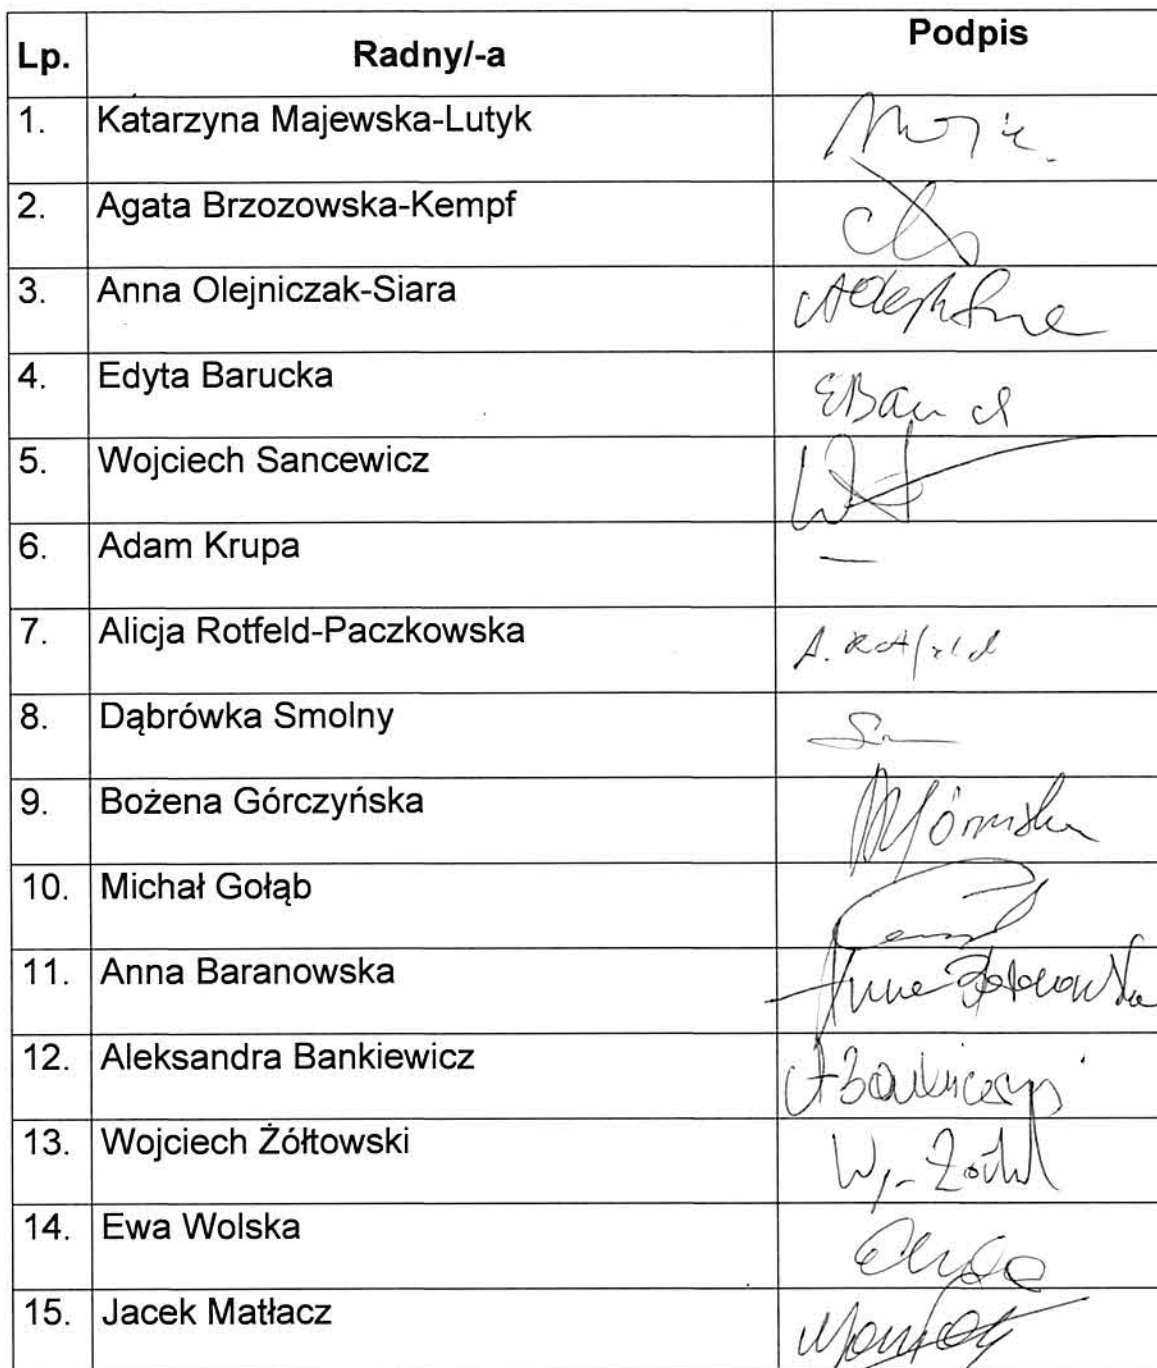 Lp. Radny/-a Podpis
1. Katarzyna Majewska-Lutyk
2. Agata Brzozowska-Kempf
3. Anna Olejniczak-Siara
4. Edyta Barucka
5. Wojciech Sancewicz
6. Adam Krupa —
7. Alicja Rotfeld-Paczkowska A. Rotfeld
8. Dąbrówka Smolny
9. Bożena Górczyńska
10. Michał Gołąb
11. Anna Baranowska Anna Baranowska
12. Aleksandra Bankiewicz
13. Wojciech Żółtowski
14. Ewa Wolska
15. Jacek Matłacz